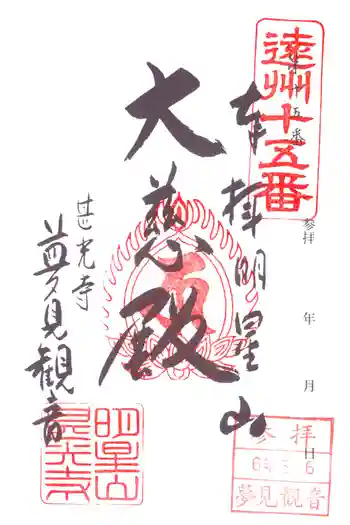 遠州十五番
第十五番
奉拝明星山
参拝 年 月 日
大慈殿
甚光寺
夢見観音
参拝
6 6
夢見観音
明星山